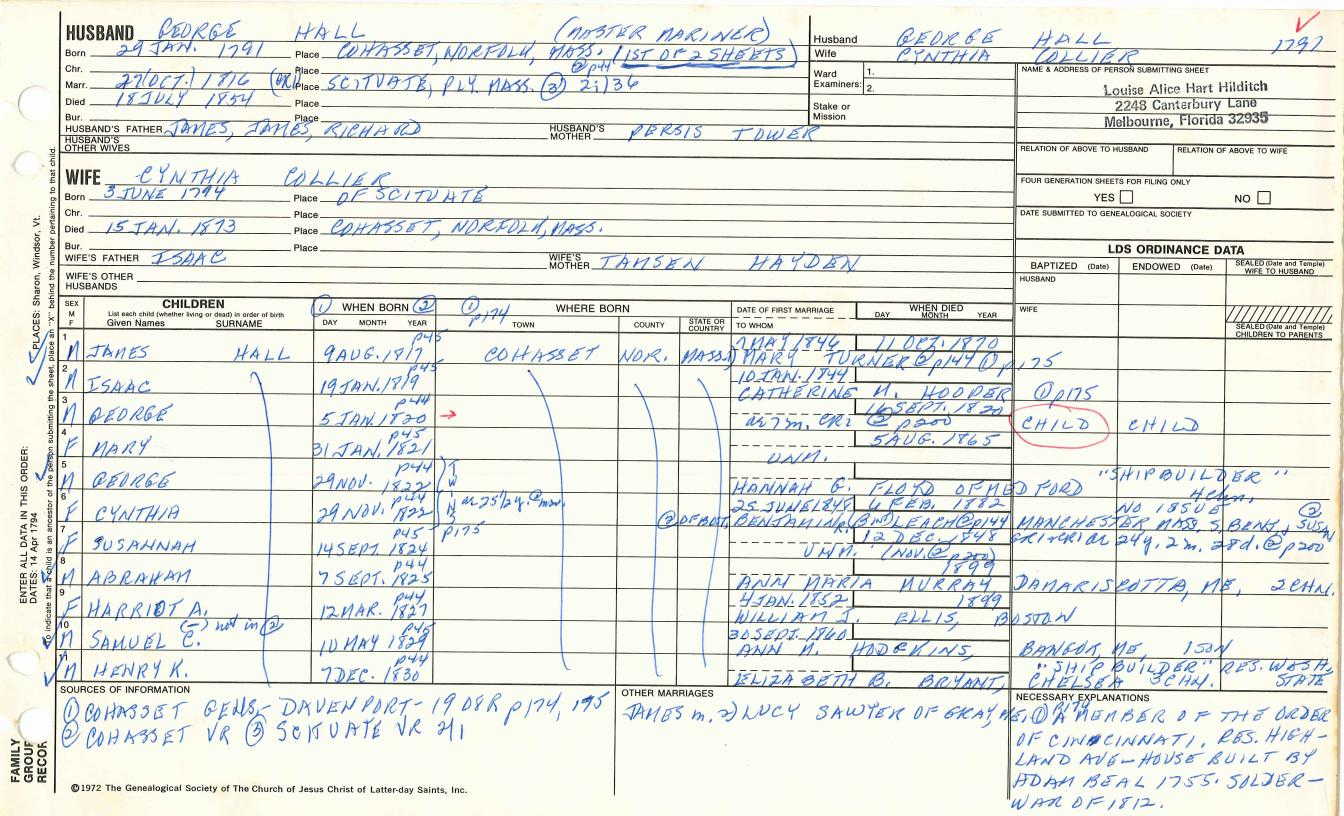 HUSBAND GEORGE HALL (MASTER MARINER)
Born 29 JAN. 1791 Place COHASSET, NORFOLK, MASS. (1ST OF 2 SHEETS)
Chr. Place ② p44
Marr. 27(OCT.) 1816 Place SCITUATE, PLY. MASS. ③ 2:136
Died 18 JULY 1854 Place
Bur. Place
HUSBAND'S FATHER JAMES, JAMES, RICHARD HUSBAND'S MOTHER PERSIS TOWER
HUSBAND'S OTHER WIVES
WIFE CYNTHIA COLLIER
Born 3 JUNE 1794 Place OF SCITUATE
Chr. Place
Died 15 JAN. 1873 Place COHASSET, NORFOLK, MASS.
Bur. Place
WIFE'S FATHER ISAAC WIFE'S MOTHER TAMSEN HAYDEN
WIFE'S OTHER HUSBANDS
Husband GEORGE HALL 1791
Wife CYNTHIA COLLIER
Ward Examiners: 1. 2.
Stake or Mission
NAME & ADDRESS OF PERSON SUBMITTING SHEET
Louise Alice Hart Hilditch
2248 Canterbury Lane
Melbourne, Florida 32935
RELATION OF ABOVE TO HUSBAND RELATION OF ABOVE TO WIFE
FOUR GENERATION SHEETS FOR FILING ONLY
YES NO
DATE SUBMITTED TO GENEALOGICAL SOCIETY
LDS ORDINANCE DATA
BAPTIZED (Date) ENDOWED (Date) SEALED (Date and Temple) WIFE TO HUSBAND
HUSBAND
WIFE
SEALED (Date and Temple) CHILDREN TO PARENTS
SEX M F
CHILDREN
List each child (whether living or dead) in order of birth
Given Names SURNAME
① WHEN BORN ②
DAY MONTH YEAR
① p174 WHERE BORN
TOWN COUNTY STATE OR COUNTRY
DATE OF FIRST MARRIAGE
TO WHOM
WHEN DIED
DAY MONTH YEAR
1 M JAMES HALL 9 AUG. 1817 p45 COHASSET NOR. MASS. MAY 1846 11 OCT. 1870
MARY TURNER ② p144 ① p175
2 M ISAAC 19 JAN. 1819 p45 10 JAN. 1844
CATHERINE M. HOOPER ① p175
3 M GEORGE 5 JAN. 1820 p44 → 16 SEPT. 1820
ae 7 m. CR1 ② p200 CHILD CHILD
4 F MARY 31 JAN. 1821 p45 5 AUG. 1865
UNM.
5 M GEORGE 29 NOV. 1822 p44 "SHIPBUILDER"
HANNAH G. FLOYD OF MEDFORD
6 F CYNTHIA 29 NOV. 1822 p44 25 JUNE 1848 4 FEB. 1882 NO ISSUE
② OF BOST. BENJAMIN LEACH ② p144 MANCHESTER MASS, S. BENJ., SUSAN
7 F SUSANNAH 14 SEPT. 1824 p45 p175 12 DEC. 1848 ae 24 y. 2 m. 28 d. ② p200
UNM. (NOV. ② p200)
8 M ABRAHAM 7 SEPT. 1825 p44 1899
ANN MARIA MURRAY DAMARISCOTTA, ME, 2 CHN.
9 F HARRIOT A. 12 MAR. 1827 p44 4 JAN. 1852 1899
WILLIAM J. ELLIS, BOSTON
10 M SAMUEL C. (–) not in ② 10 MAY 1829 p45 30 SEPT. 1860
ANN M. HODGKINS, BANGOR, ME, 1 SON
11 M HENRY K. 7 DEC. 1830 p44 "SHIPBUILDER" RES. WASH. STATE
ELIZABETH B. BRYANT, CHELSEA 3 CHN.
SOURCES OF INFORMATION
① COHASSET GENS - DAVENPORT - 1909R p174, 175
② COHASSET VR ③ SCITUATE VR 2/1
OTHER MARRIAGES
JAMES m. 2) LUCY SAWYER OF GRAY, ME. ① p174
NECESSARY EXPLANATIONS
A MEMBER OF THE ORDER
OF CINCINNATI. RES. HIGH-
LAND AVE - HOUSE BUILT BY
ADAM BEAL 1755. SOLDER -
WAR OF 1812.
©1972 The Genealogical Society of The Church of Jesus Christ of Latter-day Saints, Inc.
FAMILY GROUP RECOR
ENTER ALL DATA IN THIS ORDER:
DATES: 14 Apr 1794
PLACES: Sharon, Windsor, Vt.
To indicate that a child is an ancestor of the person submitting the sheet, place an "X" behind the number pertaining to that child.